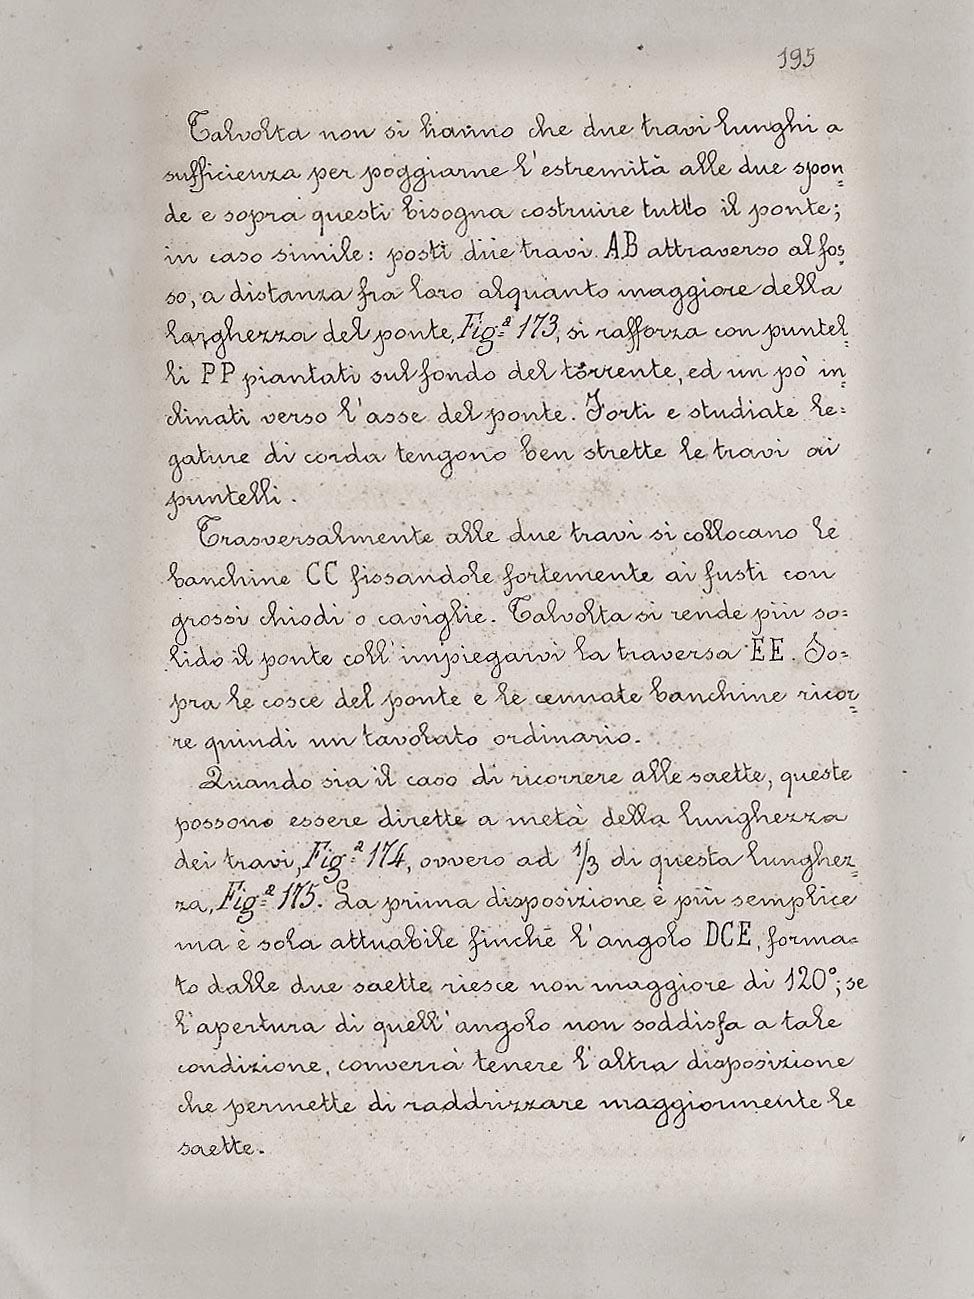 195
Talvolta non si hanno che due travi lunghi a
sufficienza per poggiarne l'estremità alle due spon=
de e sopra questi bisogna costruire tutto il ponte;
in caso simile: posti due travi AB attraverso al fos=
so, a distanza fra loro alquanto maggiore della
larghezza del ponte, Fig.ª 173, si rafforza con puntel=
li PP piantati sul fondo del torrente, ed un pò in=
clinati verso l'asse del ponte. Forti e studiate le=
gature di corda tengono ben strette le travi ai
puntelli.
Trasversalmente alle due travi si collocano le
banchine CC fissandole fortemente ai fusti con
grossi chiodi o caviglie. Talvolta si rende più so=
lido il ponte coll'impiegarvi la traversa EE. So=
pra le cosce del ponte e le cennate banchine ricor=
re quindi un tavolato ordinario.
Quando sia il caso di ricorrere alle saette, queste
possono essere dirette a metà della lunghezza
dei travi, Fig.ª 174, ovvero ad 1/3 di questa lunghez=
za, Fig.ª 175. La prima disposizione è più semplice
ma è sola attuabile finchè l'angolo DCE, forma=
to dalle due saette riesce non maggiore di 120°; se
l'apertura di quell'angolo non soddisfa a tale
condizione, converrà tenere l'altra disposizione
che permette di raddrizzare maggiormente le
saette.